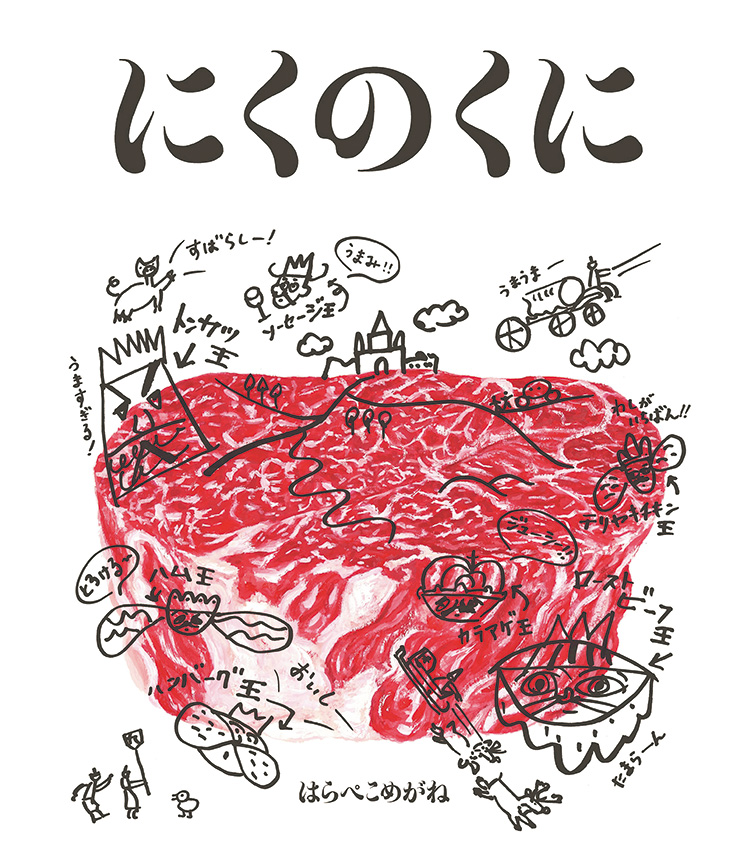 にくのくに
すばらしー!
うまみ!!
ソーセージ王
うまうまー
トンカツ
王
うますぎる!
わしが
いちばん!!
テリヤキチキン
王
ジューシー!!
とろける〜
ハム王
カラアゲ王
ロースト
ビーフ
王
ハンバーグ王
おいしー
肉
肉
たまらーん
はらぺこめがね